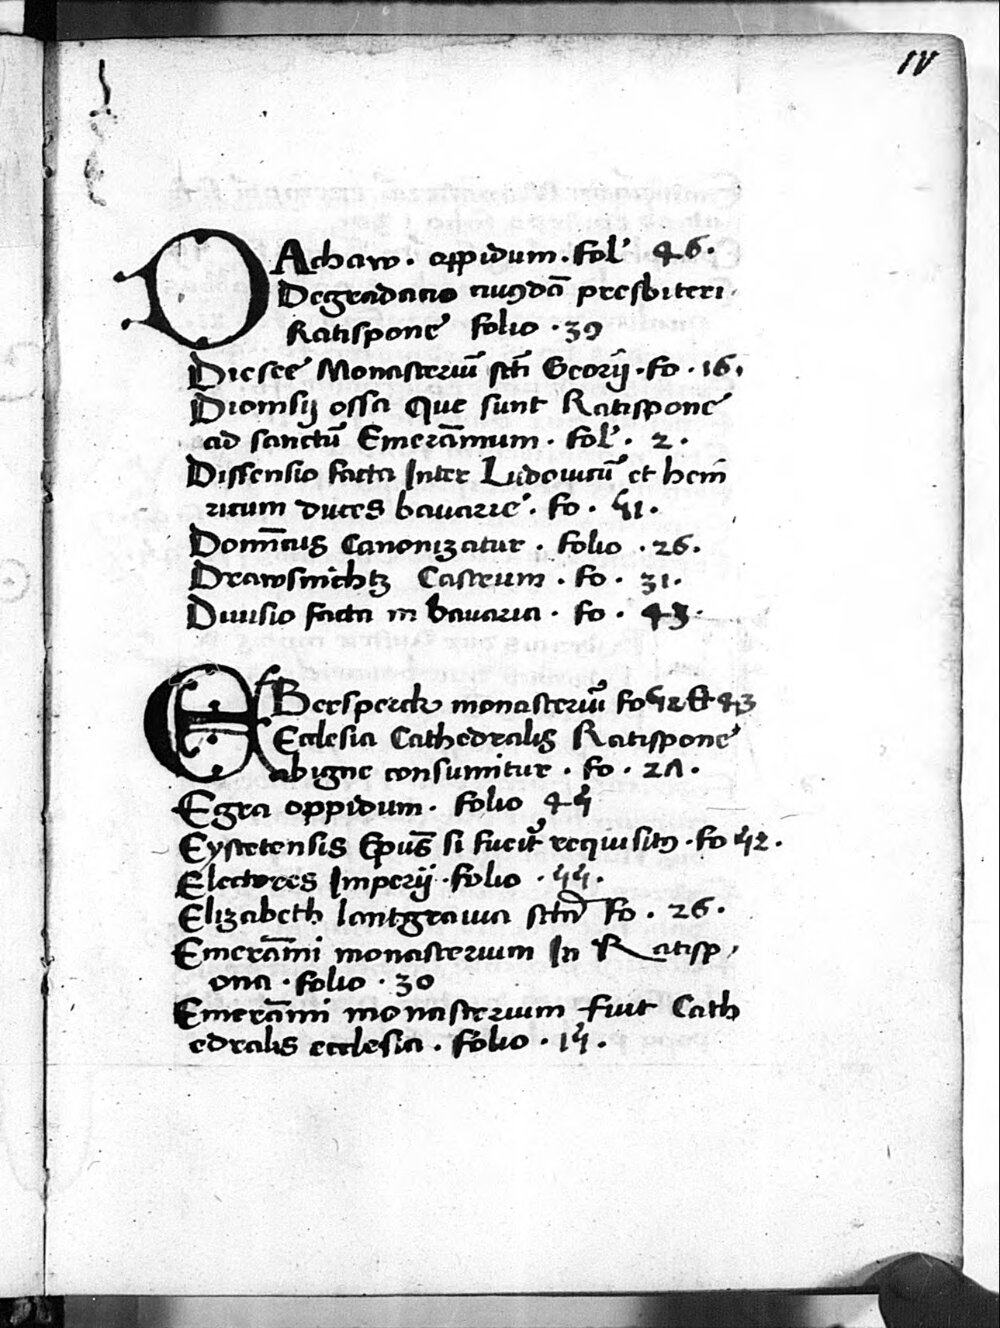 IV
DAchaw · oppidum · fol' 46 ·
Degradacio cuiusdā presbiteri ·
Ratisponē folio · 39
Diesēē Monasteriū sc̄ti Georij · fo · 16 ·
Dionisij ossa Que sunt Ratisponē
ad sanctū Emerāmum · fol' · 2 ·
Dissensio facta Inter Ludowicū et hein
ricum duces bauarie · fo · 51 ·
Domīcus Canonizatur · folio · 26 ·
Drawsnichtz Castrum · fo · 31 ·
Diuisio facta in bauaria · fo · 43 ·
EBersperck monasteriū fo 52 Et 43
Ecclesia Cathedralis Ratisponē
abigne consumitur · fo · 27 ·
Egra oppidum · folio 45
Eystetensis Epūs si fuerit requisit9 · fo 52 ·
Electores Imperij · folio · 55 ·
Elizabeth lantgrauia fo · 26 ·
Emerāmi monasterium In Ratisp
ona · folio · 30
Emerāmi monasterium fuit Cath
edralis ecclesia · folio · 15 ·